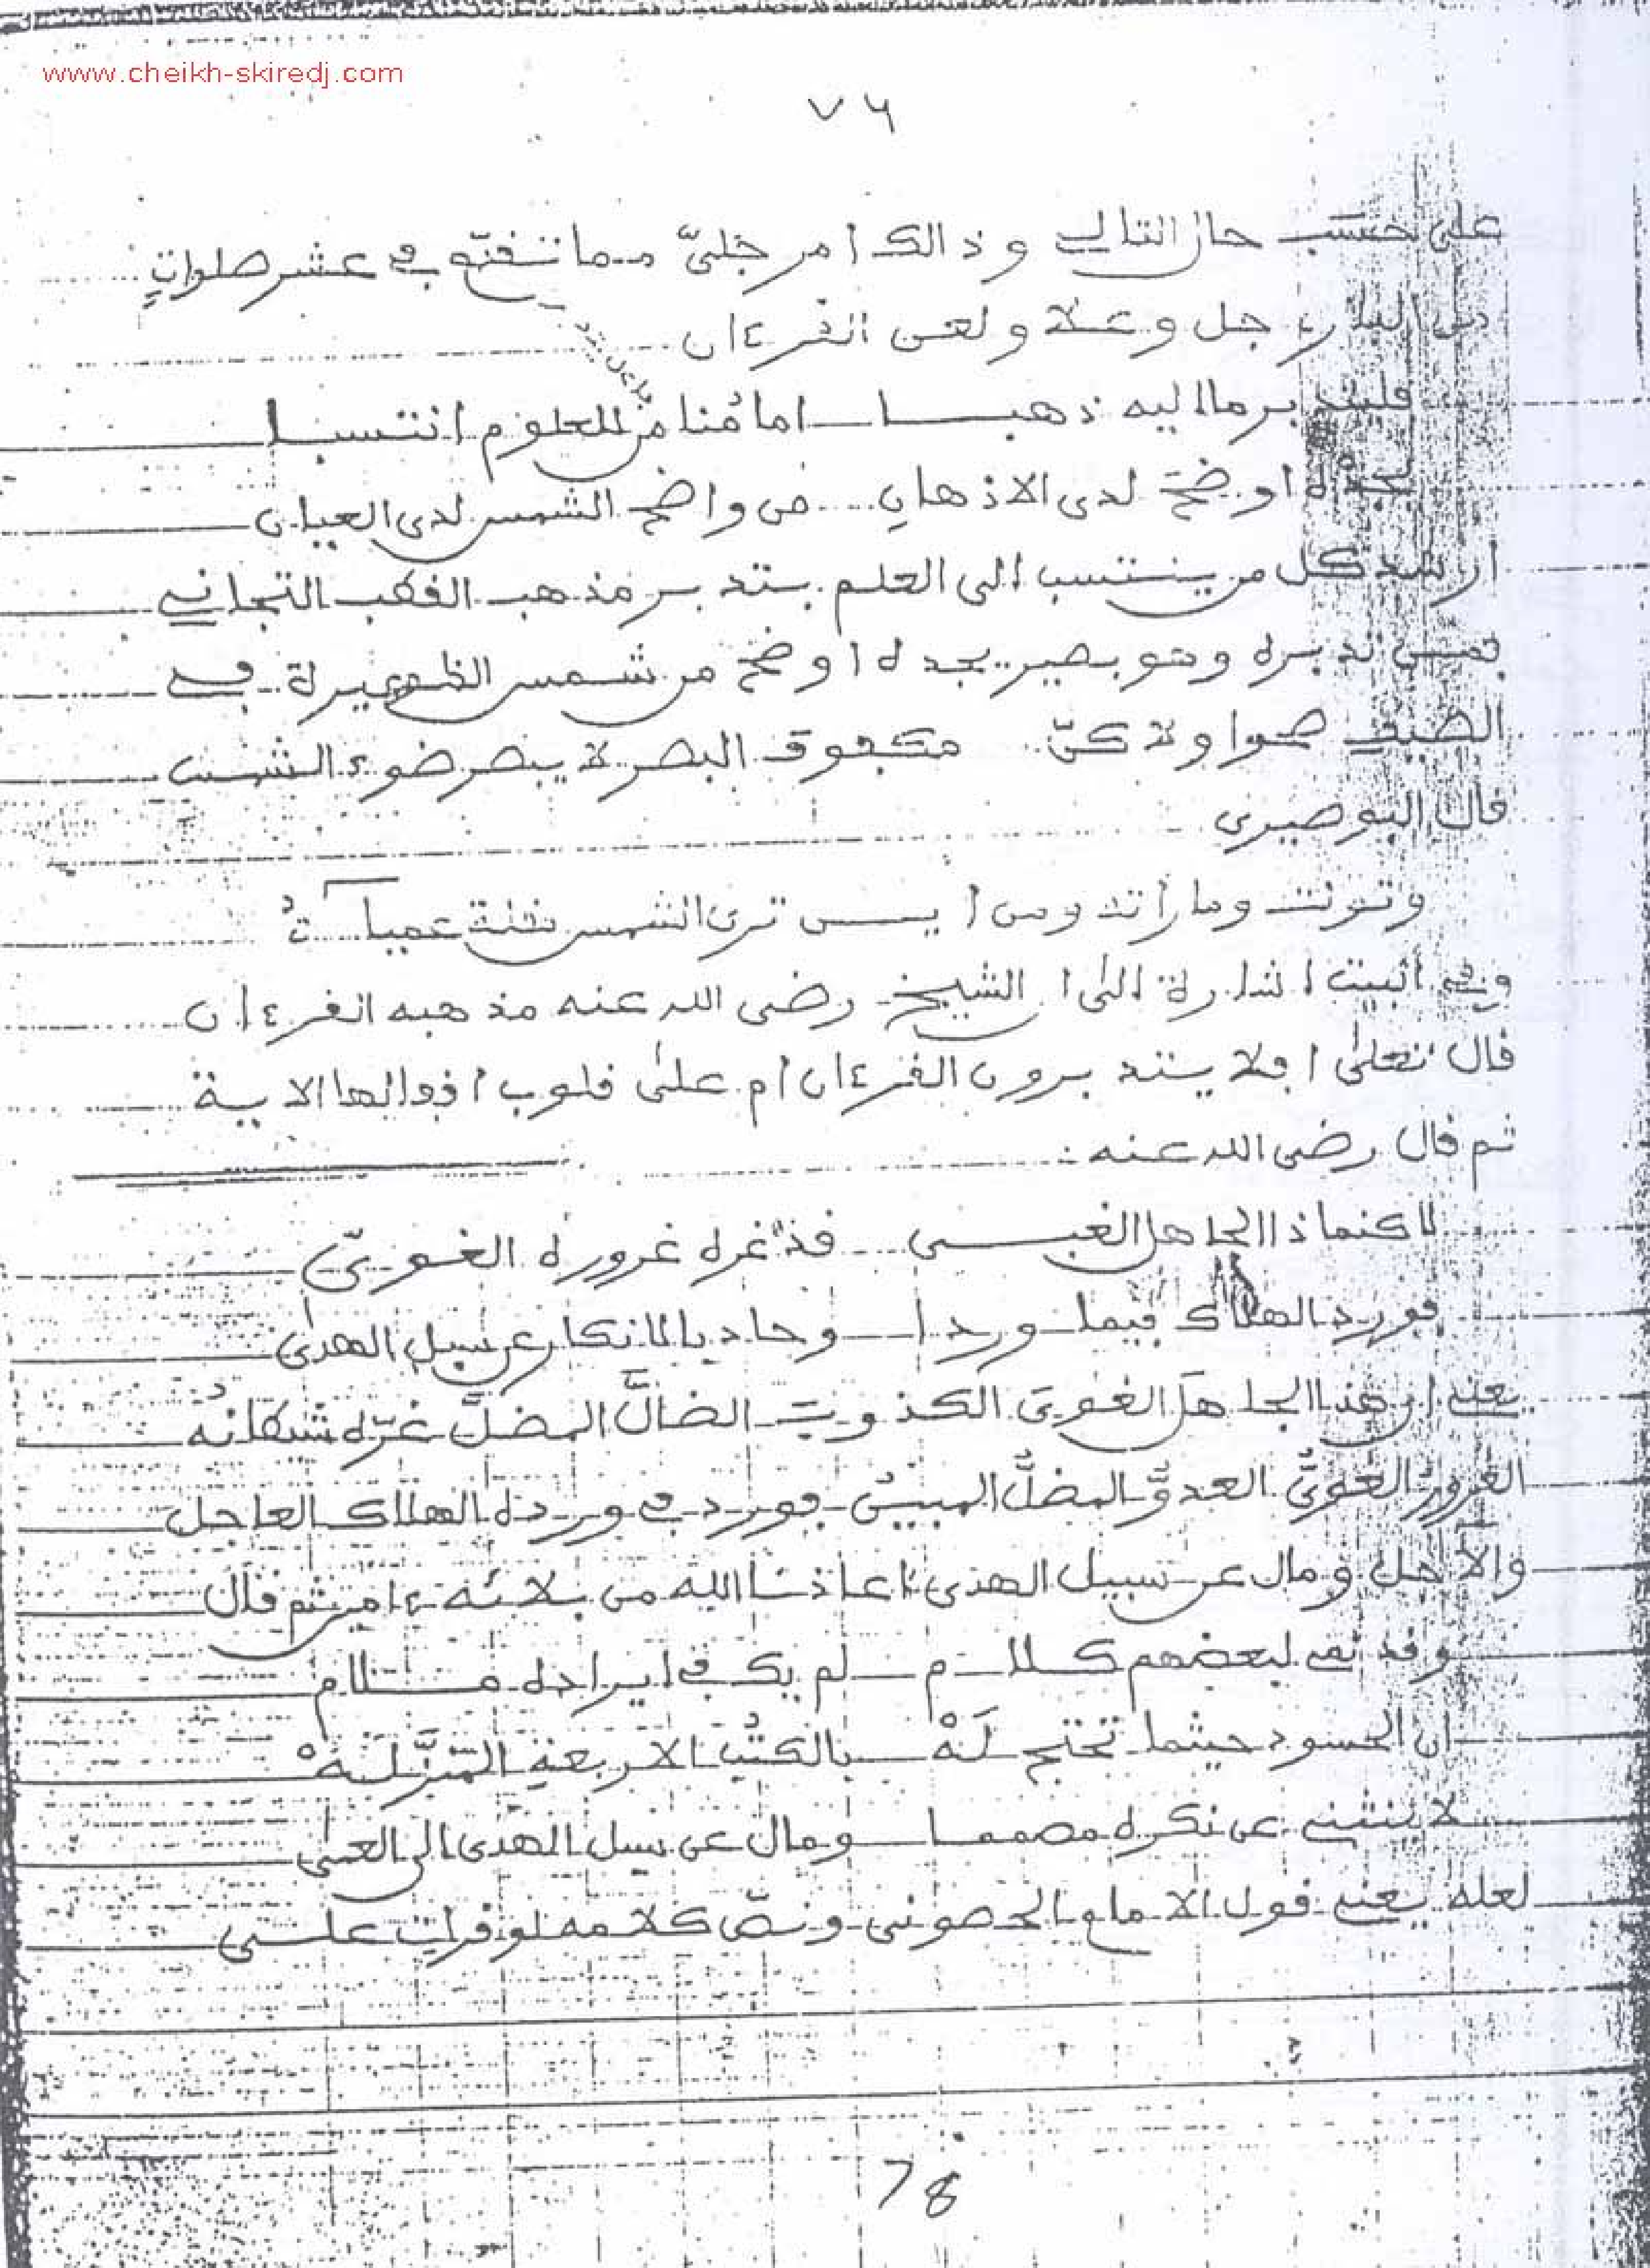 www.cheikh-skiredj.com
٧٦
على حسب حال التالي وذالك امر جليّ مما تفقّه في عشر صلوات
البارء جل وعلا ولغى القرءان
فليتدبر ما اليه ذهبا امامُنا من للعلوم انتسبا
يجدْه اوضحَ لدى الاذهانِ من واضح الشمس لدى العيان
ارشد كل من ينتسب الى العلم بتدبر مذهب القطب التجاني
فمن تدبره وهو بصير يجده اوضح من شمس الظهيرة في
الصيف صحوا ولاكنّ مكفوف البصر لا يبصر ضوء الشمس
قال البوصيري
وتولت وما رأته ومن أيـن ترى الشمس مقلة عمياءُ
وفي البيت اشارة الى ا الشيخ رضى الله عنه مذهبه القرءان
قال تعلى افلا يتدبرون القرءان ام على قلوب اقفالها الاية
ثم قال رضى الله عنه:
لاكنما ذا الجاهل الغبـي قد غره غروره الغويّ
فورد الهلاك فيما وردا وحاد بالانكار عن سبل الهدى
يعني ان هذا الجاهل الغوي الكذوب الضالّ المضلّ غرّه شيطانُه
الغرور الغويُّ العدوُّ المضلُّ المبينُ فورد في ورده الهلاك العاجل
والآجل ومال عن سبيل الهدى اعاذنا الله من بلائه ءامين ثم قال
وقد نمي لبعضهم كـلام لم يك في ايراده مـلام
ان الحسود حيثما تحتج لَهْ بالكتْب الاربعةِ المنَزَّلَهْ
لا ينثني عن نكره مصمما ومال عن سبل الهدى الى العمى
لعله يعني قول الامام الحصوني ونصّ كلامه لو قرأت علـى
78